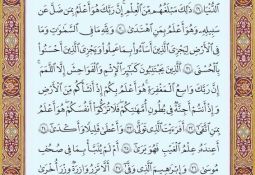 ٱلدُّنْيَا ۝٢٩ ذَٰلِكَ مَبْلَغُهُم مِّنَ ٱلْعِلْمِ إِنَّ رَبَّكَ هُوَ أَعْلَمُ بِمَن ضَلَّ عَن
سَبِيلِهِۦ وَهُوَ أَعْلَمُ بِمَنِ ٱهْتَدَىٰ ۝٣٠ وَلِلَّهِ مَا فِى ٱلسَّمَٰوَٰتِ وَمَا
فِى ٱلْأَرْضِ لِيَجْزِىَ ٱلَّذِينَ أَسَٰٓـُٔوا۟ بِمَا عَمِلُوا۟ وَيَجْزِىَ ٱلَّذِينَ أَحْسَنُوا۟
بِٱلْحُسْنَى ۝٣١ ٱلَّذِينَ يَجْتَنِبُونَ كَبَٰٓئِرَ ٱلْإِثْمِ وَٱلْفَوَٰحِشَ إِلَّا ٱللَّمَمَ ۚ
إِنَّ رَبَّكَ وَٰسِعُ ٱلْمَغْفِرَةِ ۚ هُوَ أَعْلَمُ بِكُمْ إِذْ أَنشَأَكُم مِّنَ ٱلْأَرْضِ
وَإِذْ أَنتُمْ أَجِنَّةٌ فِى بُطُونِ أُمَّهَٰتِكُمْ ۖ فَلَا تُزَكُّوٓا۟ أَنفُسَكُمْ ۖ هُوَ أَعْلَمُ
بِمَنِ ٱتَّقَىٰٓ ۝٣٢ أَفَرَءَيْتَ ٱلَّذِى تَوَلَّىٰ ۝٣٣ وَأَعْطَىٰ قَلِيلًا وَأَكْدَىٰٓ ۝٣٤
أَعِندَهُۥ عِلْمُ ٱلْغَيْبِ فَهُوَ يَرَىٰٓ ۝٣٥ أَمْ لَمْ يُنَبَّأْ بِمَا فِى صُحُفِ
مُوسَىٰ ۝٣٦ وَإِبْرَٰهِيمَ ٱلَّذِى وَفَّىٰٓ ۝٣٧ أَلَّا تَزِرُ وَازِرَةٌ وِزْرَ أُخْرَىٰ